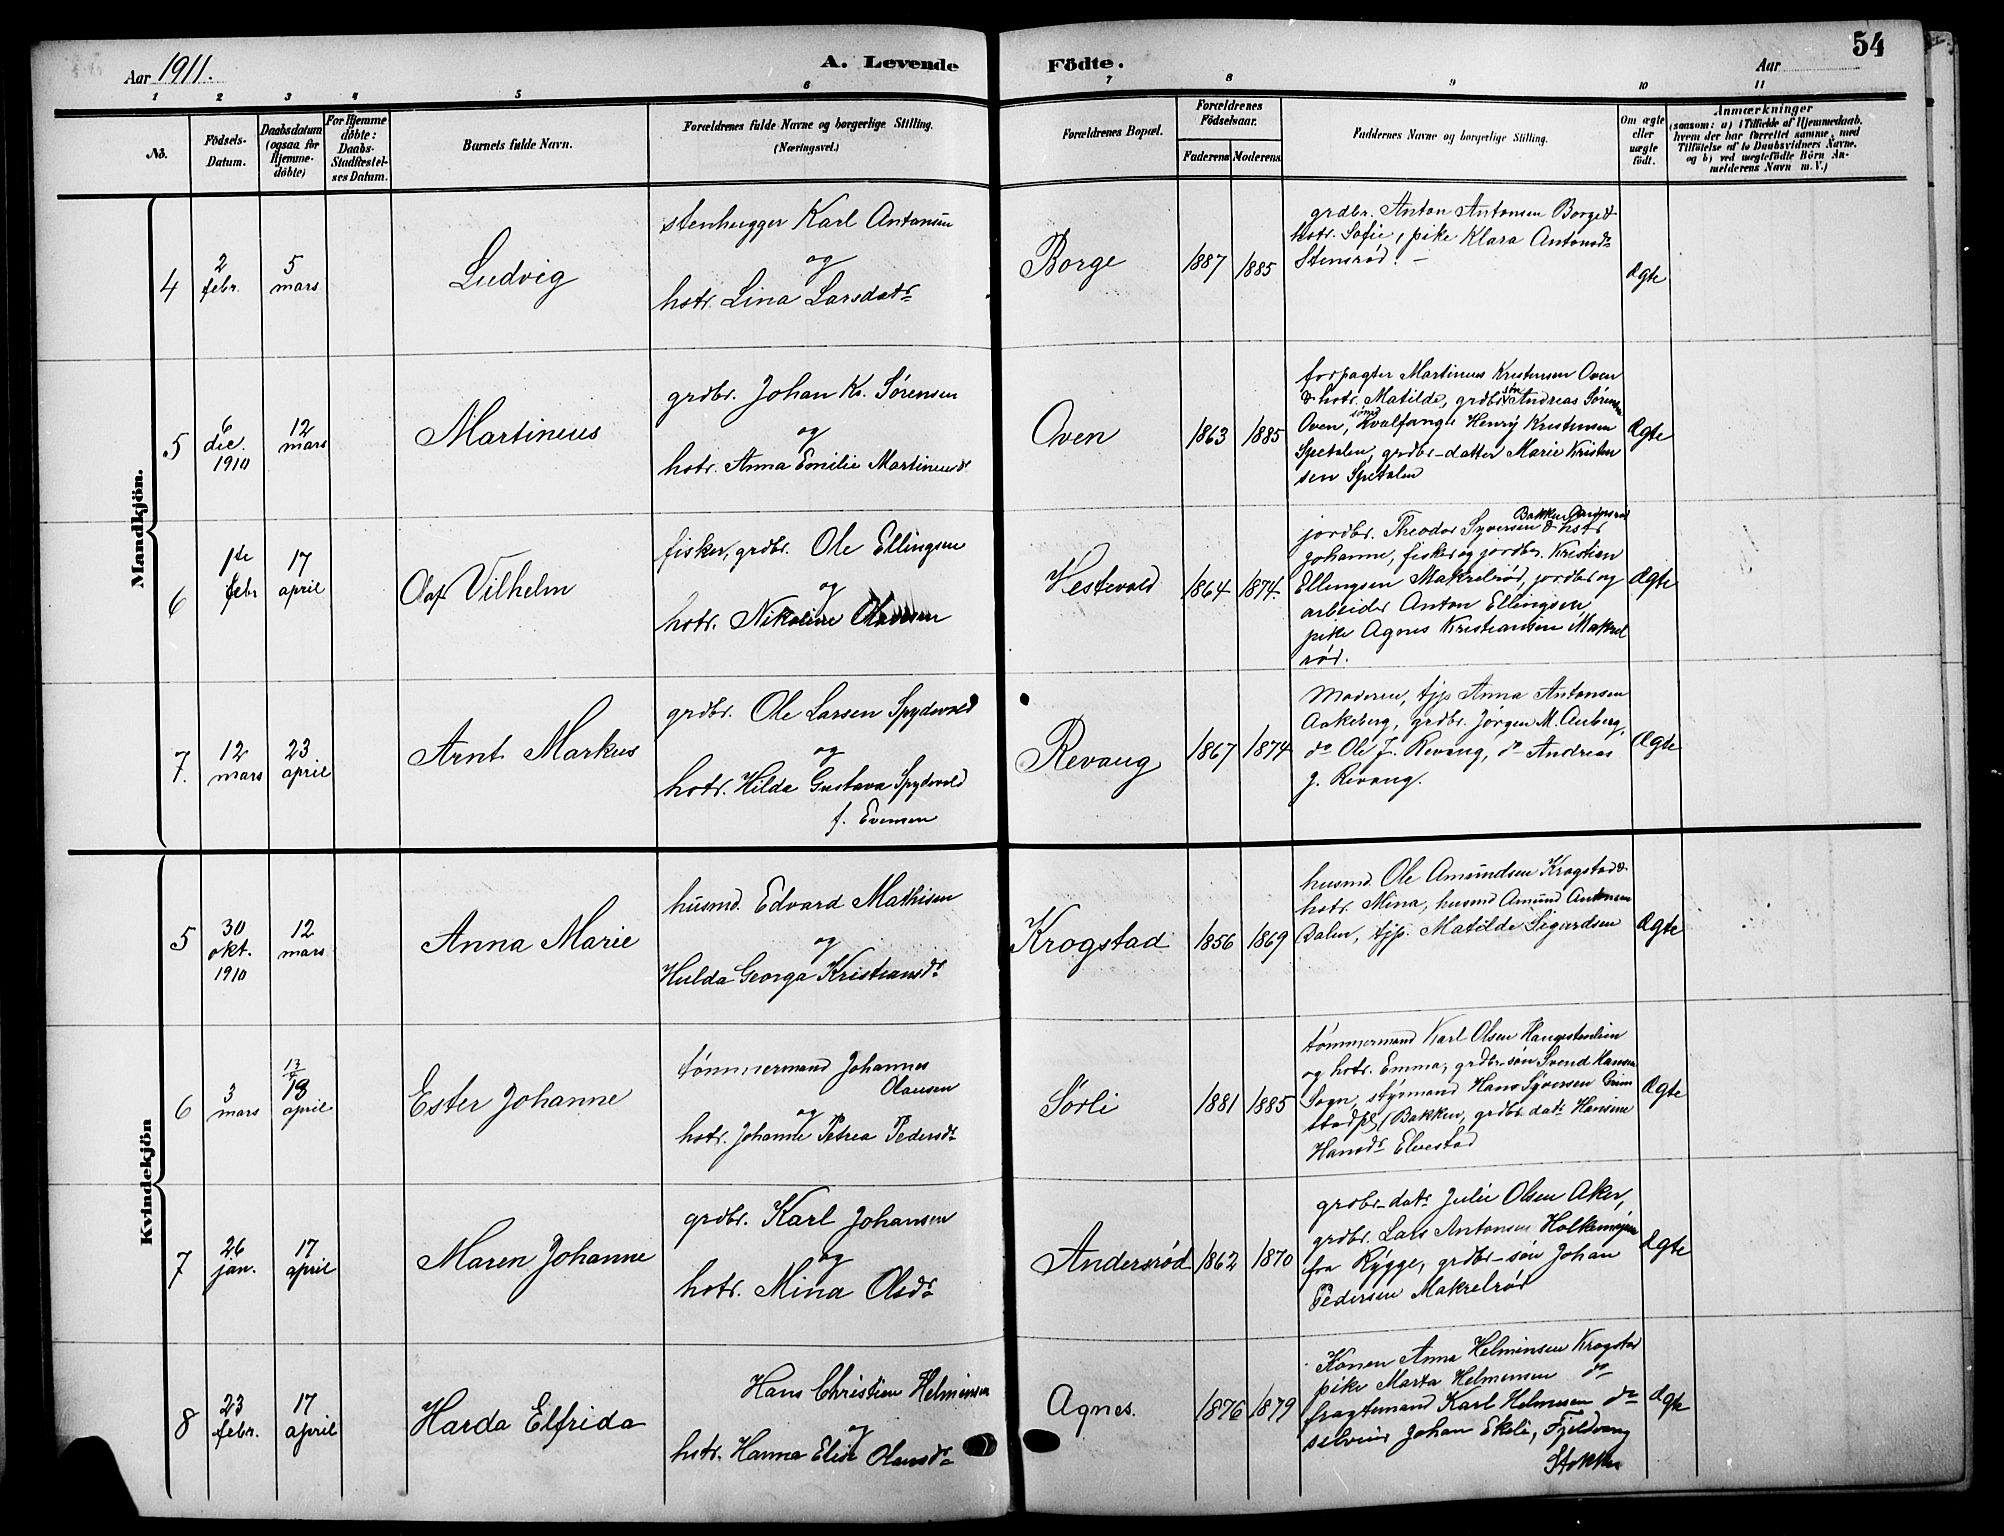 54
Aar 1911.
A. Levende Födte.
Aar
1 2 3 4 5 6 7 8 9 10 11
No.
Födsels-Datum.
Daabsdatum (ogsaa for Hjemme-döbte)
For Hjemme döbte: Daabs-Stadfæstel-ses Datum.
Barnets fulde Navn.
Forældrenes fulde Navne og borgerlige Stilling. (Næringsvei.)
Forældrenes Bopæl.
Forældrenes Födselsaar.
Faderens Moderens
Faddernes Navne og borgerlige Stilling.
Om ægte eller uægte födt.
Anmærkninger
(saasom: a) i Tilfælde af Hjemmedaab,
hvem der har forrettet samme, med
Tilföielse af to Daabsvidners Navne,
og b) ved uægtefödte Börn An-
melderens Navn m. V.)
Mandkjön.
4
2 febr.
5 mars
Ludvig
stenhugger Karl Antonsen
og
hstr. Lina Larsdatr
Borge
1887 1885
grdbr. Anton Antonsen Borge &
hstr. Sofie, pike Klara Antonsdr
Stensrød. –
ægte
5
6 dec. 1910
12 mars
Martinius
grdbr. Johan K. Sørensen
og
hstr. Anna Emilie Martinusd.
Oven
1863 1885
forpagter Martinius Kristensen Oven
& hstr. Matilde, grdbr. søn Andreas Sørensen
Oven, Hvalfanger Henry Kristensen
Spetalen, grdbr-datter Marie Kristen
sen Spetalen
ægte
6
1ste febr
17 april
Olaf Vilhelm
fisker, grdbr. Ole Ellingsen
og
hstr. Nikoline
Vestevold
1864 1874.
jordbr. Theodor Syversen Bakken & hstr
Johanne, fisker og jordbr. Kristian
Ellingsen Makrelrød, jordbr og
arbeider Anton Ellingsen,
pike Agnes Kristiansen Makrel
rød.
ægte
7.
12 mars
23 april
Arnt Markus
grdbr. Ole Larsen Spydevold
og
hstr. Hilda Gustava Spydevold
f. Evensen
Revaug
1867 1874
Moderen, tjp Anna Antonsen
Aakeberg, grdbr. Jørgen M. Auberg,
do Ole J. Revaug, do Andreas
J. Revaug.
Ægte
Kvindekjön
5
30 okt. 1910
12 mars
Anna Marie
husmd. Edvard Mathisen
og
Hulda Georga Kristiansdr
Krogstad
1856 1869
husmd. Ole Amundsen Krogstad &
hstr. Mina, husmd Amund Antonsen
Dalen, tjp. Matilde Sigurdsen
Ægte
6
3 mars
17/4
18 april
Ester Johanne
tømmermand Johannes
Olausen
og
hstr. Johanne Petrea Pedersdr
Sørli
1881 1885
tømmermand Karl Olsen Haugstenlien
og hstr. Emma, grdbr-søn Svend Hansen
Sogn, styrmand Hans Syversen Grim
stad pl (Bakken, grdbr.datr Hansine
Hansdr Elvestad
Ægte
7
26 jan.
17 april
Maren Johanne
grdbr. Karl Johansen
og
hstr. Mina Olsdr
Andersrød
1862 1870
grdbr-datr Julie Olsen Aker,
grdbr. Lars Antonsen
fra Rygge, grdbr-søn Johan
Pedersen Makrelrød
ægte
8
23 febr.
17 april
Harda Elfrida
Hans Christian Helminsen
og
hstr. Hanna Elise Olausdr
Agnes.
1876 1879
Konen Anna Helminsen Krogstad
pike Marta Helmensen do
fragtemand Karl Helmesen do
selveier Johan Ekeli, Fjeldvang
Stokke
ægte